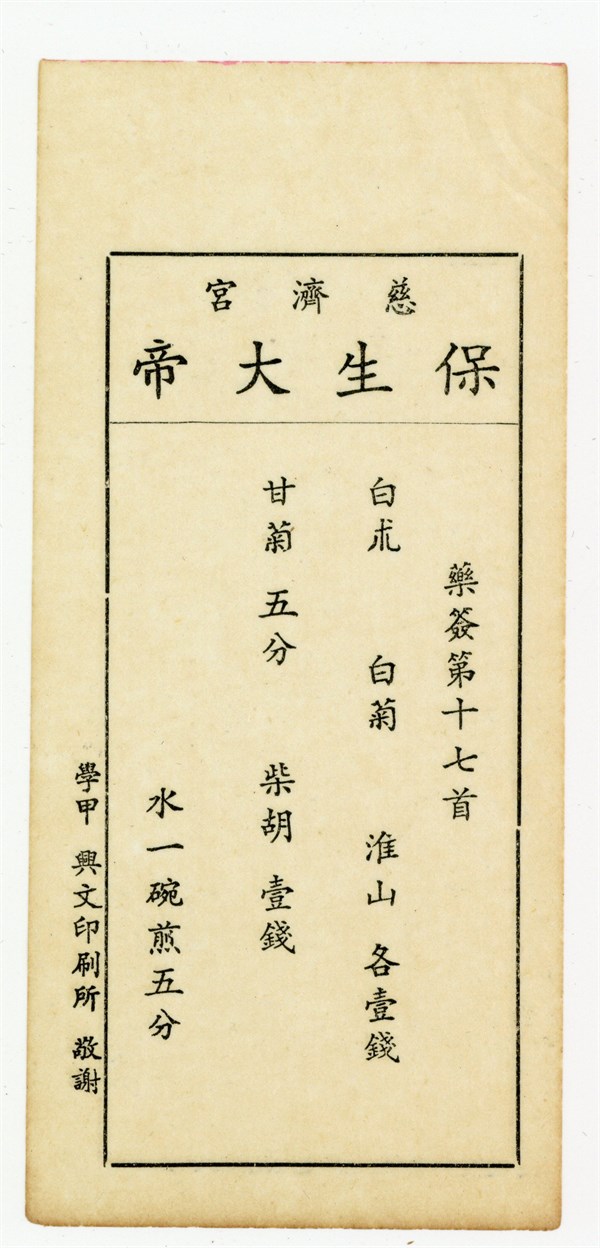 慈濟宮
保生大帝
藥簽第十七首
白朮 白菊 淮山 各壹錢
甘菊 五分 柴胡 壹錢
水一碗煎五分
學甲 興文印刷所 敬謝